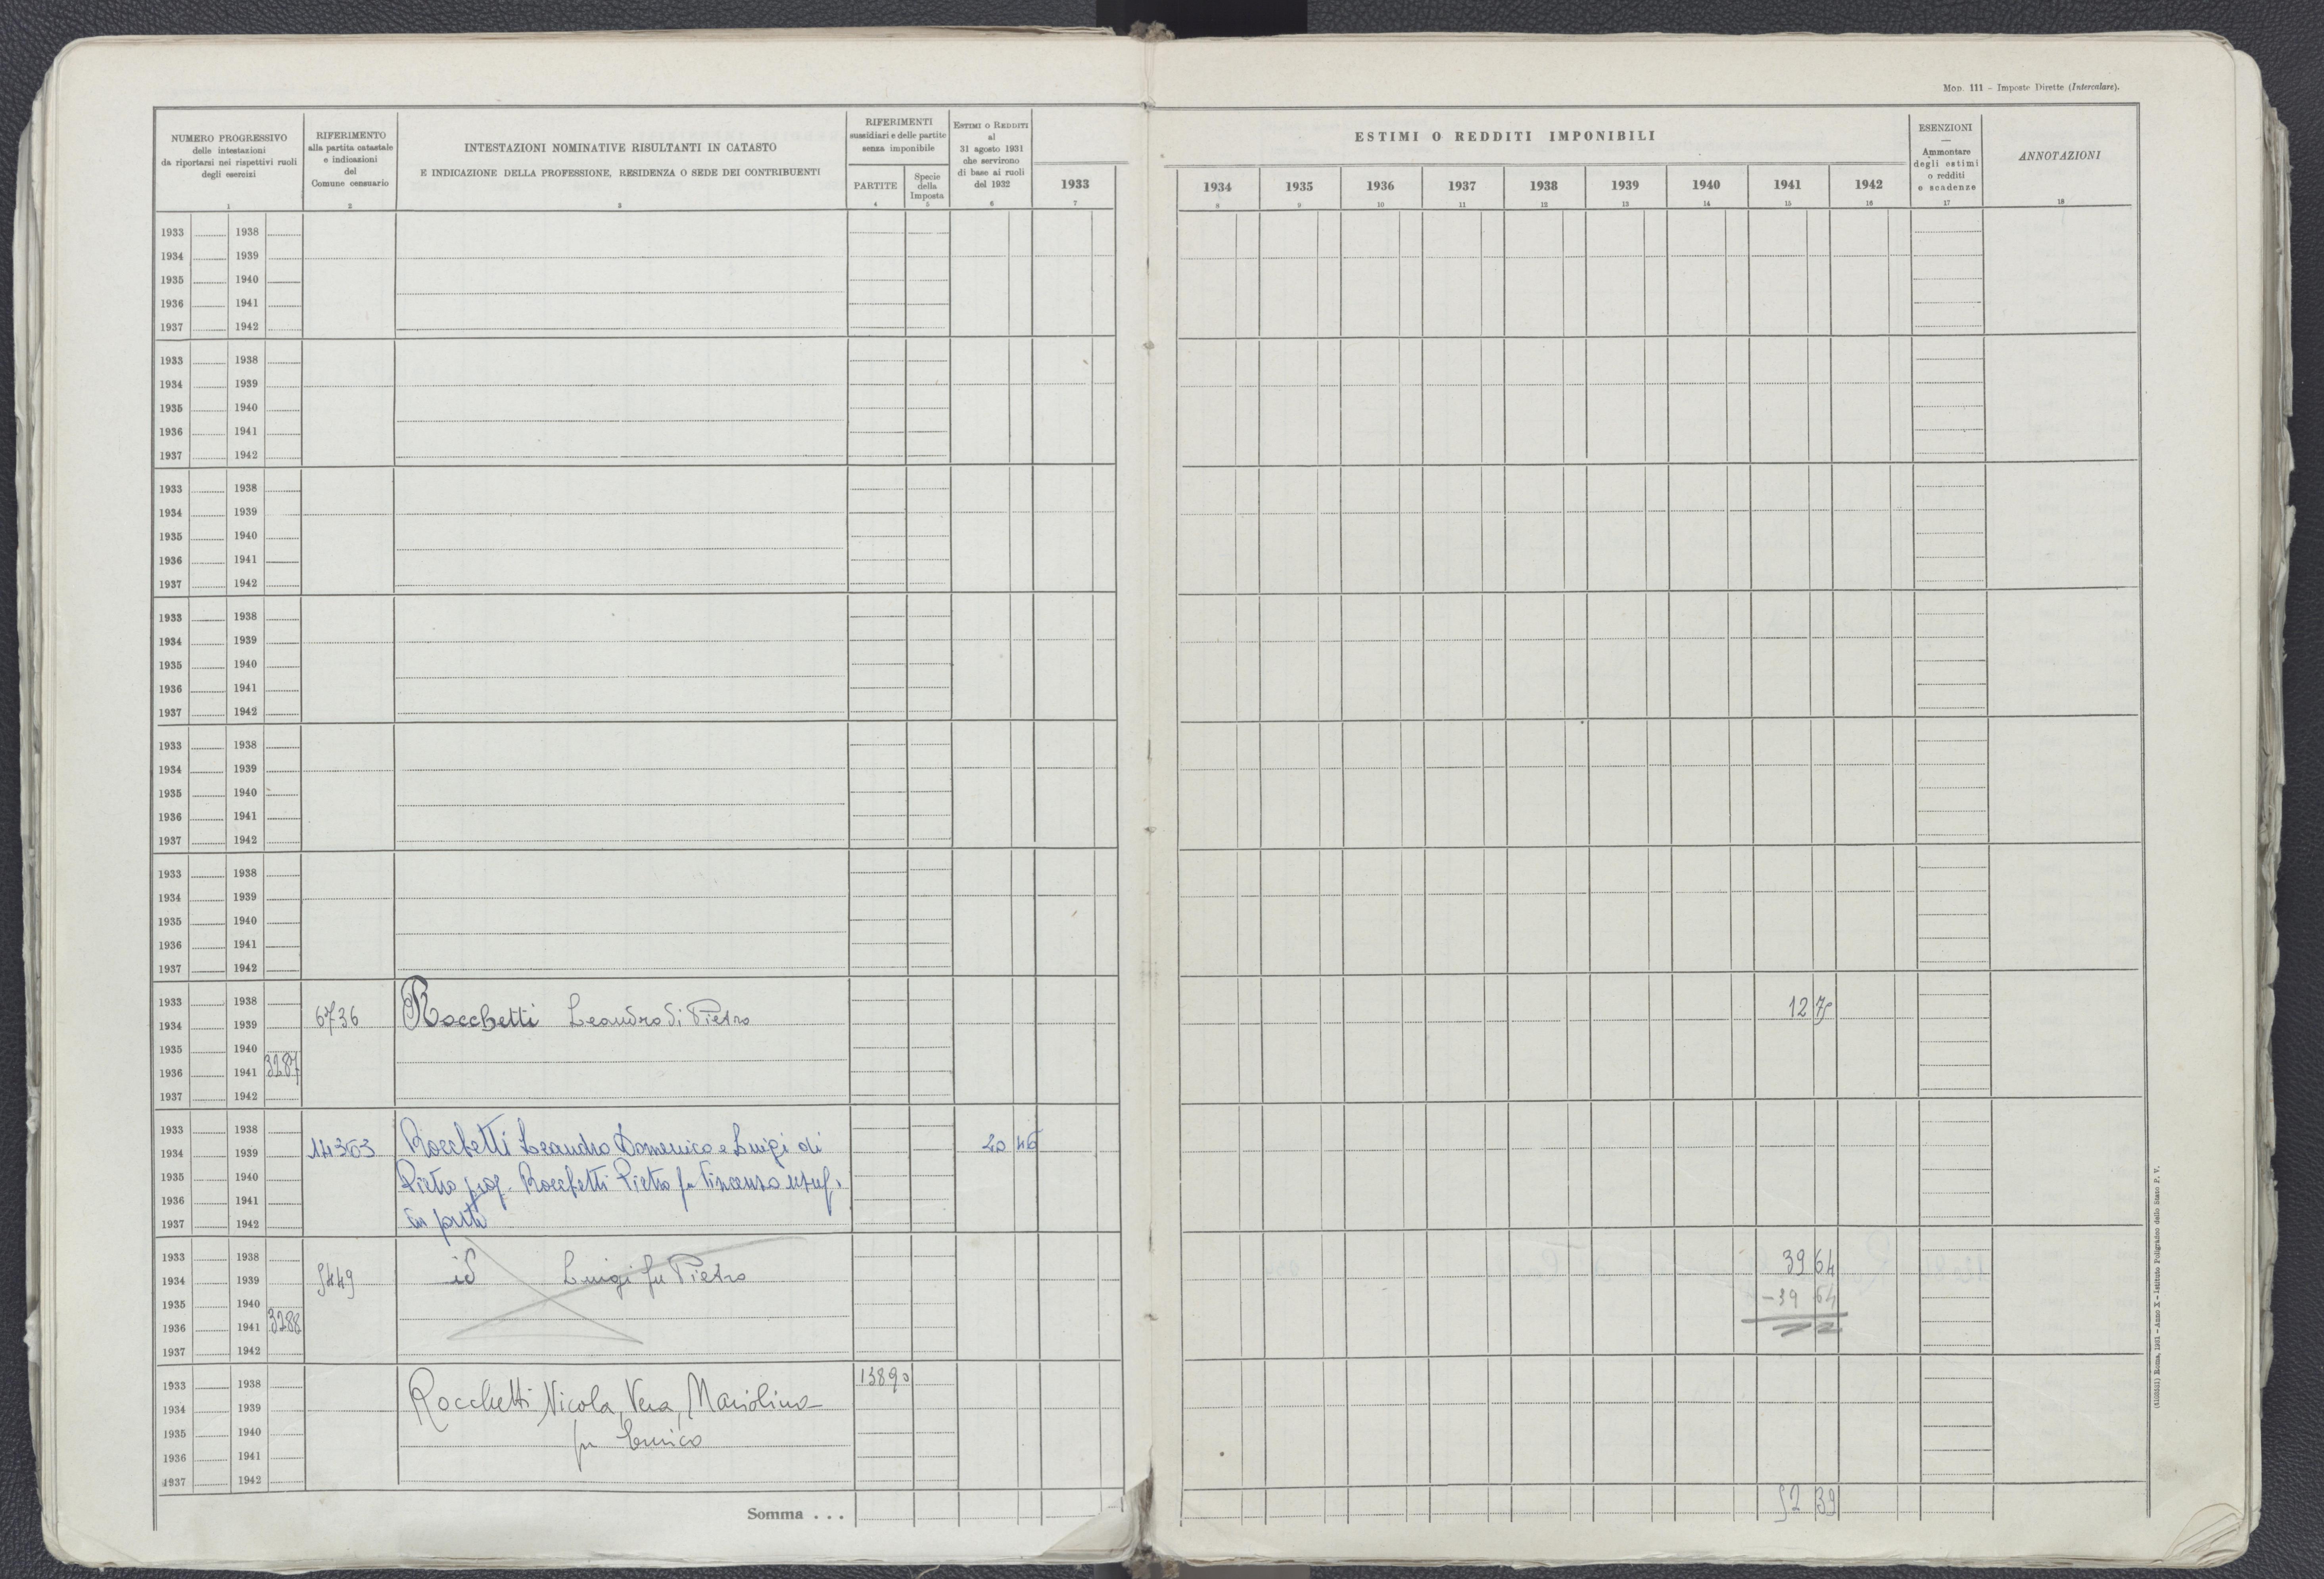 Mod. 111 - Imposte Dirette (Intercalare).
NUMERO PROGRESSIVO
delle intestazioni
da riportarsi nei rispettivi ruoli
degli esercizi
1
RIFERIMENTO
alla partita catastale
e indicazioni
del
Comune censuario
2
INTESTAZIONI NOMINATIVE RISULTANTI IN CATASTO
E INDICAZIONE DELLA PROFESSIONE, RESIDENZA O SEDE DEI CONTRIBUENTI
3
RIFERIMENTI
sussidiari e delle partite
senza imponibile
PARTITE
4
Specie
della
Imposta
5
ESTIMI O REDDITI
al
31 agosto 1931
che servirono
di base ai ruoli
del 1932
6
1933
7
ESTIMI O REDDITI IMPONIBILI
1934 1935 1936 1937 1938 1939 1940 1941 1942
8 9 10 11 12 13 14 15 16
ESENZIONI
Ammontare
degli estimi
o redditi
e scadenze
17
ANNOTAZIONI
18
1933 1938
1934 1939
1935 1940
1936 1941
1937 1942
1933 1938
1934 1939
1935 1940
1936 1941
1937 1942
1933 1938
1934 1939
1935 1940
1936 1941
1937 1942
1933 1938
1934 1939
1935 1940
1936 1941
1937 1942
1933 1938
1934 1939
1935 1940
1936 1941
1937 1942
1933 1938
1934 1939
1935 1940
1936 1941
1937 1942
1933 1938 12 75
1934 1939 6736 Rocchetti Leandro di Pietro
1935 1940
1936 1941 3287
1937 1942
1933 1938
1934 1939 14303 Rocchetti Leandro Domenico e Luigi di 20 46
1935 1940 Pietro prop. Rocchetti Pietro fu Vincenzo usuf.
1936 1941
1937 1942 in parte
1933 1938 39 64
1934 1939 5449 id Luigi fu Pietro
1935 1940 -39 64
1936 1941 3288
1937 1942
1933 1938 13890
1934 1939 Rocchetti Nicola, Vera, Mariolina
1935 1940 fu Enrico
1936 1941
1937 1942
Somma . . . 52 39
Roma, 1931 - Anno X - Istituto Poligrafico dello Stato P. V.